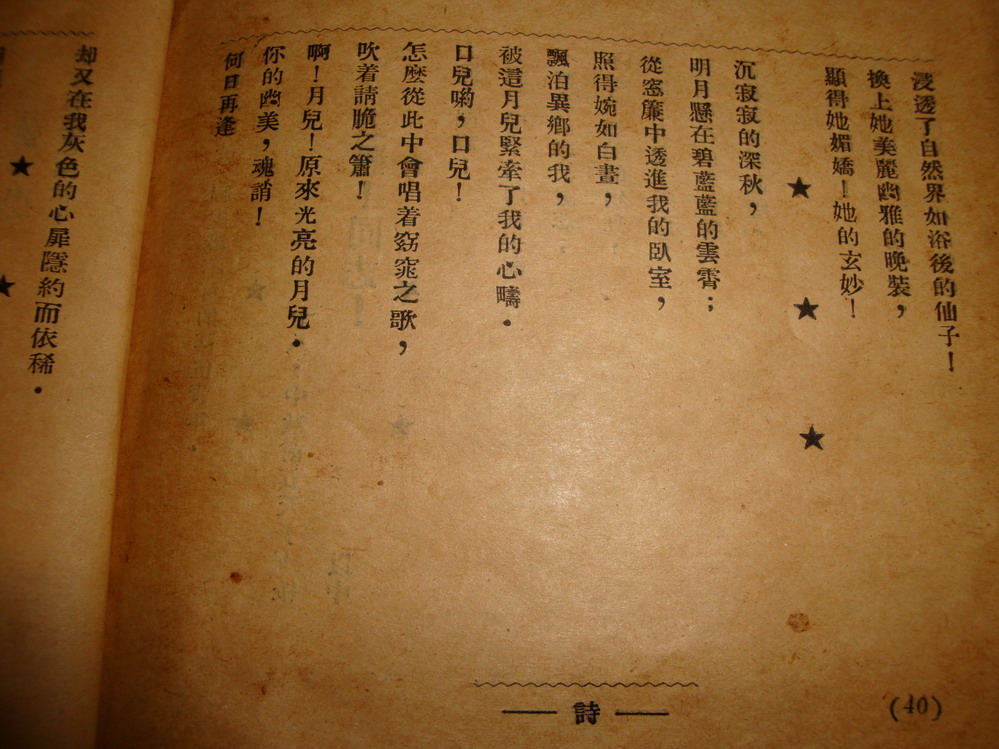 浸透了自然界如浴後的仙子！
換上她美麗幽雅的晚裝，
顯得她媚嬌！她的玄妙！
★ ★ ★
沉寂寂的深秋，
明月懸在碧藍藍的雲霄；
從窓簾中透進我的臥室，
照得婉如白晝，
飄泊異鄉的我，
被這月兒緊牽了我的心疇．
口兒喲，口兒！
怎麼從此中會唱着窈窕之歌，
吹着請脆之簫！
啊！月兒！原來光亮的月兒．
你的幽美，魂誚！
何日再逢
却又在我灰色的心扉隱約而依稀．
★ ★
詩
(40)